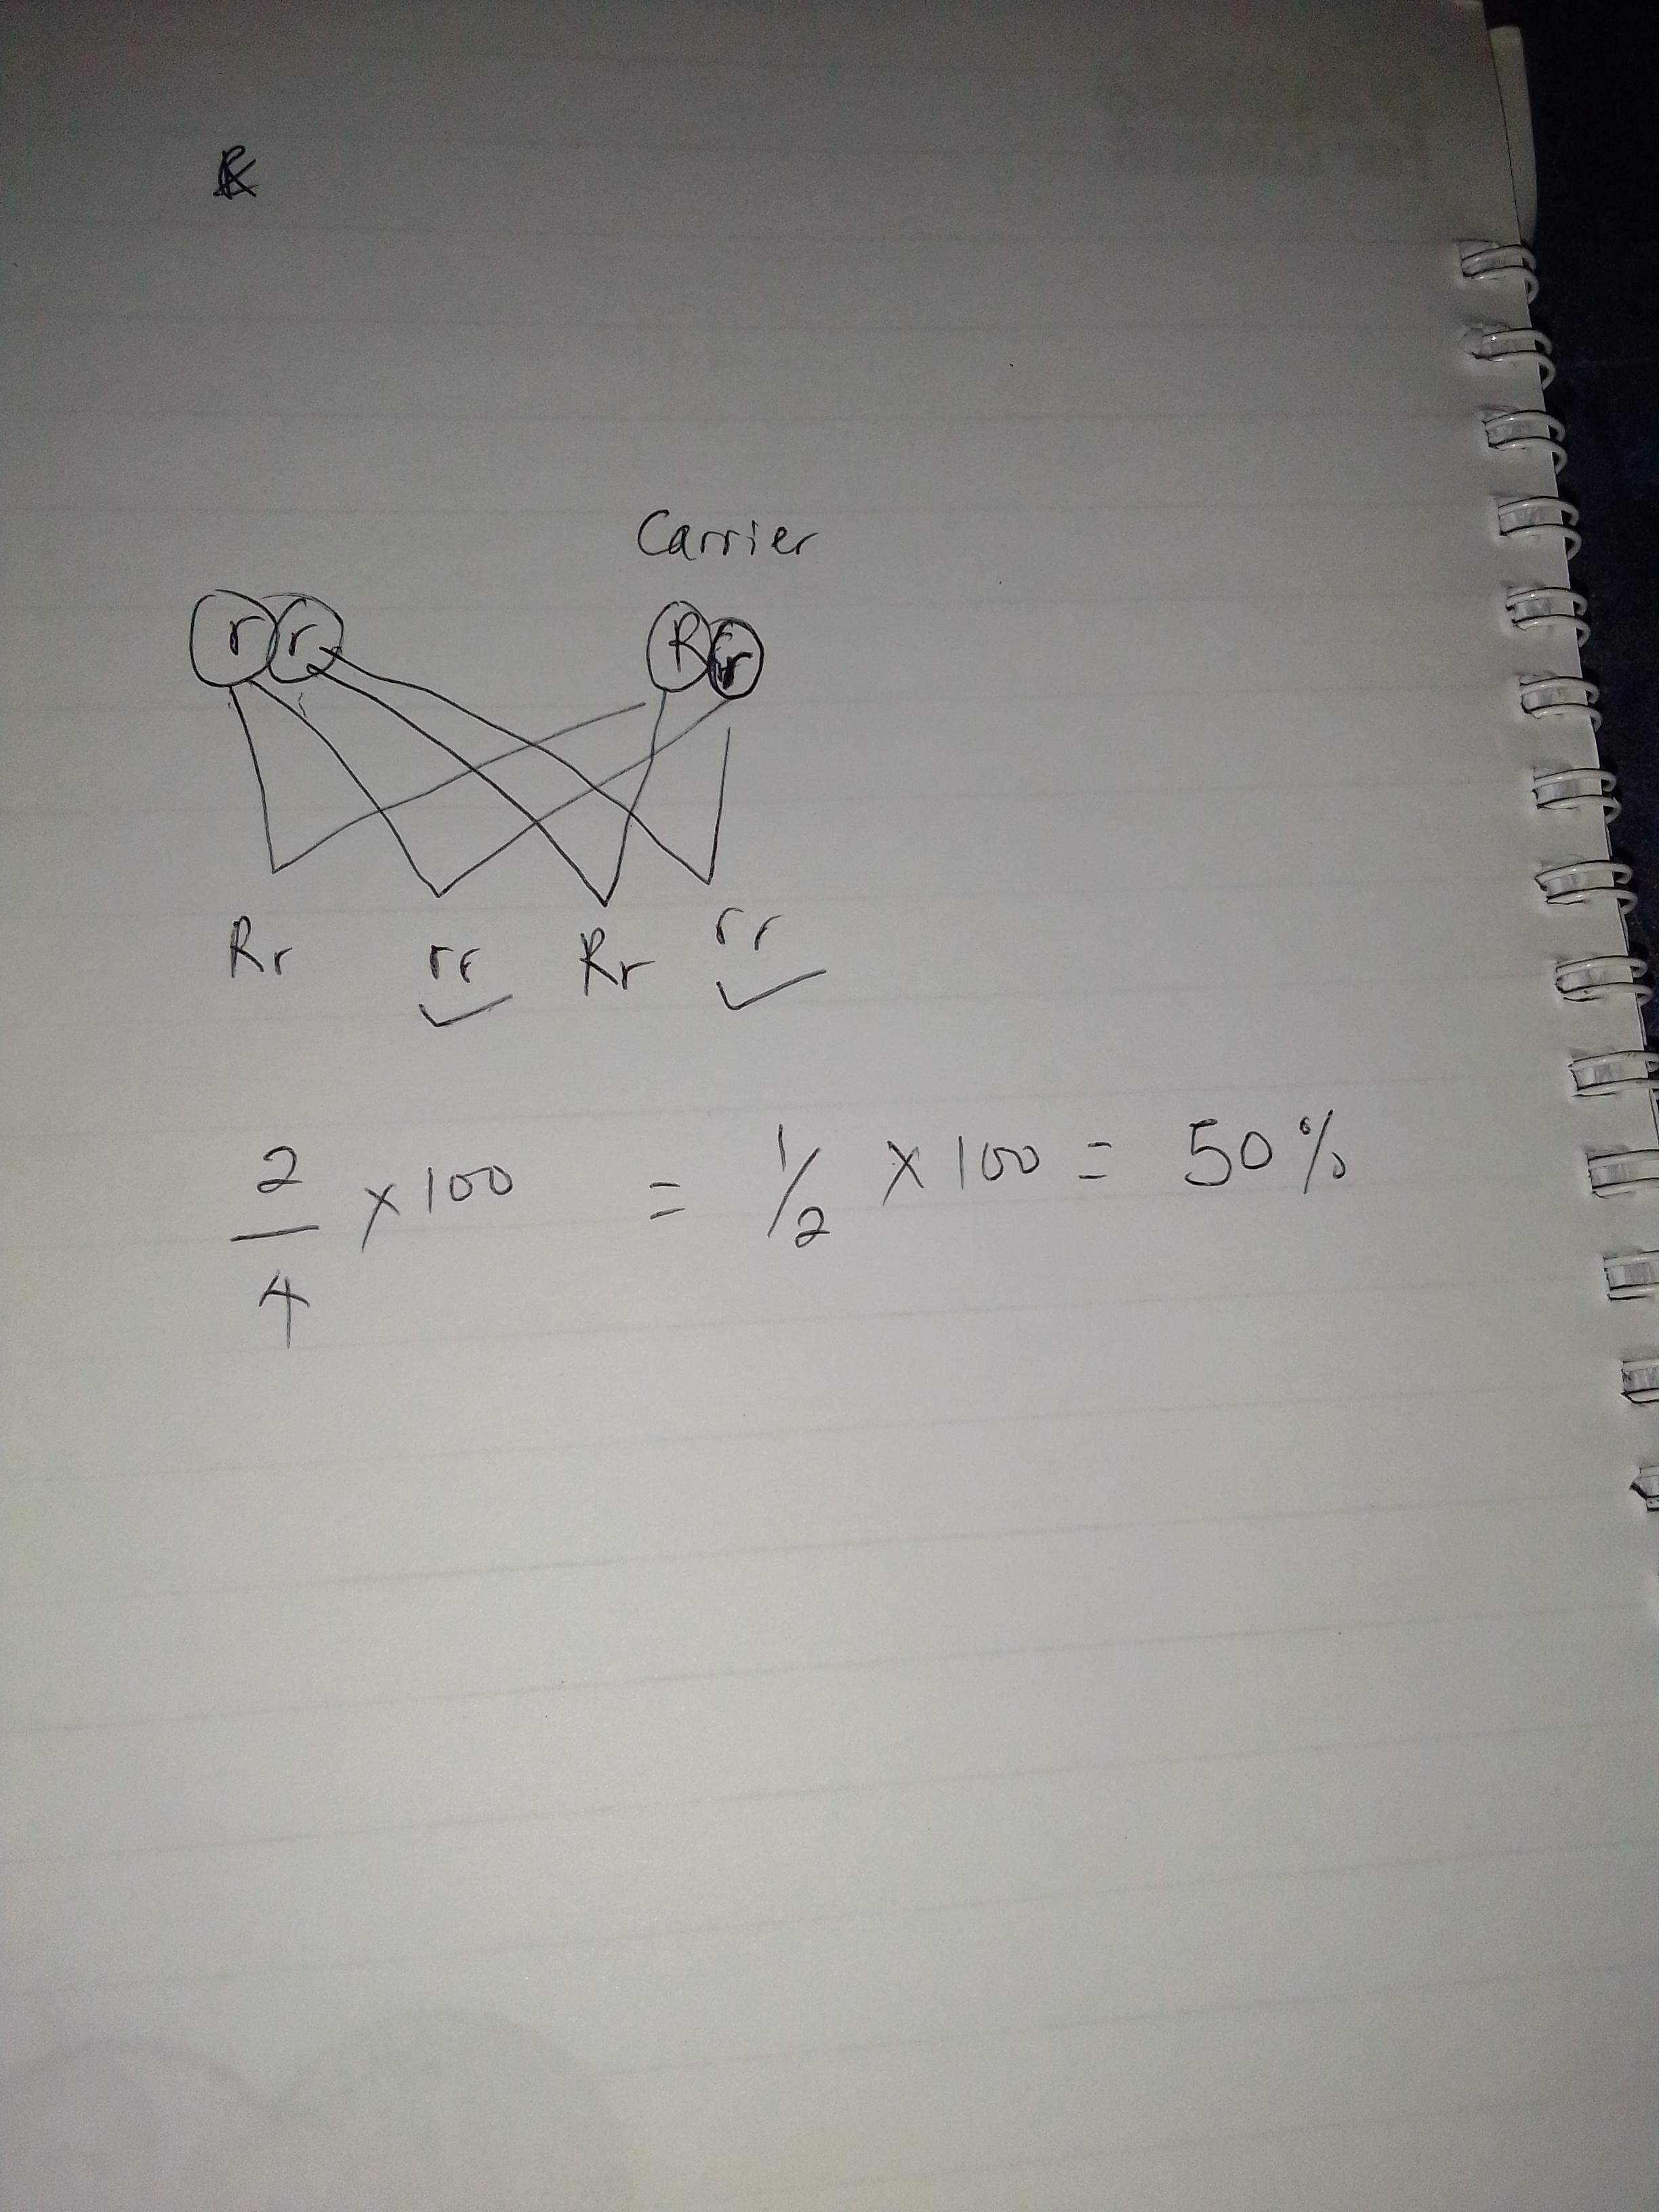 R
Carrier
r r R r
Rr rr Rr rr
2/4 x 100 = 1/2 x 100 = 50%